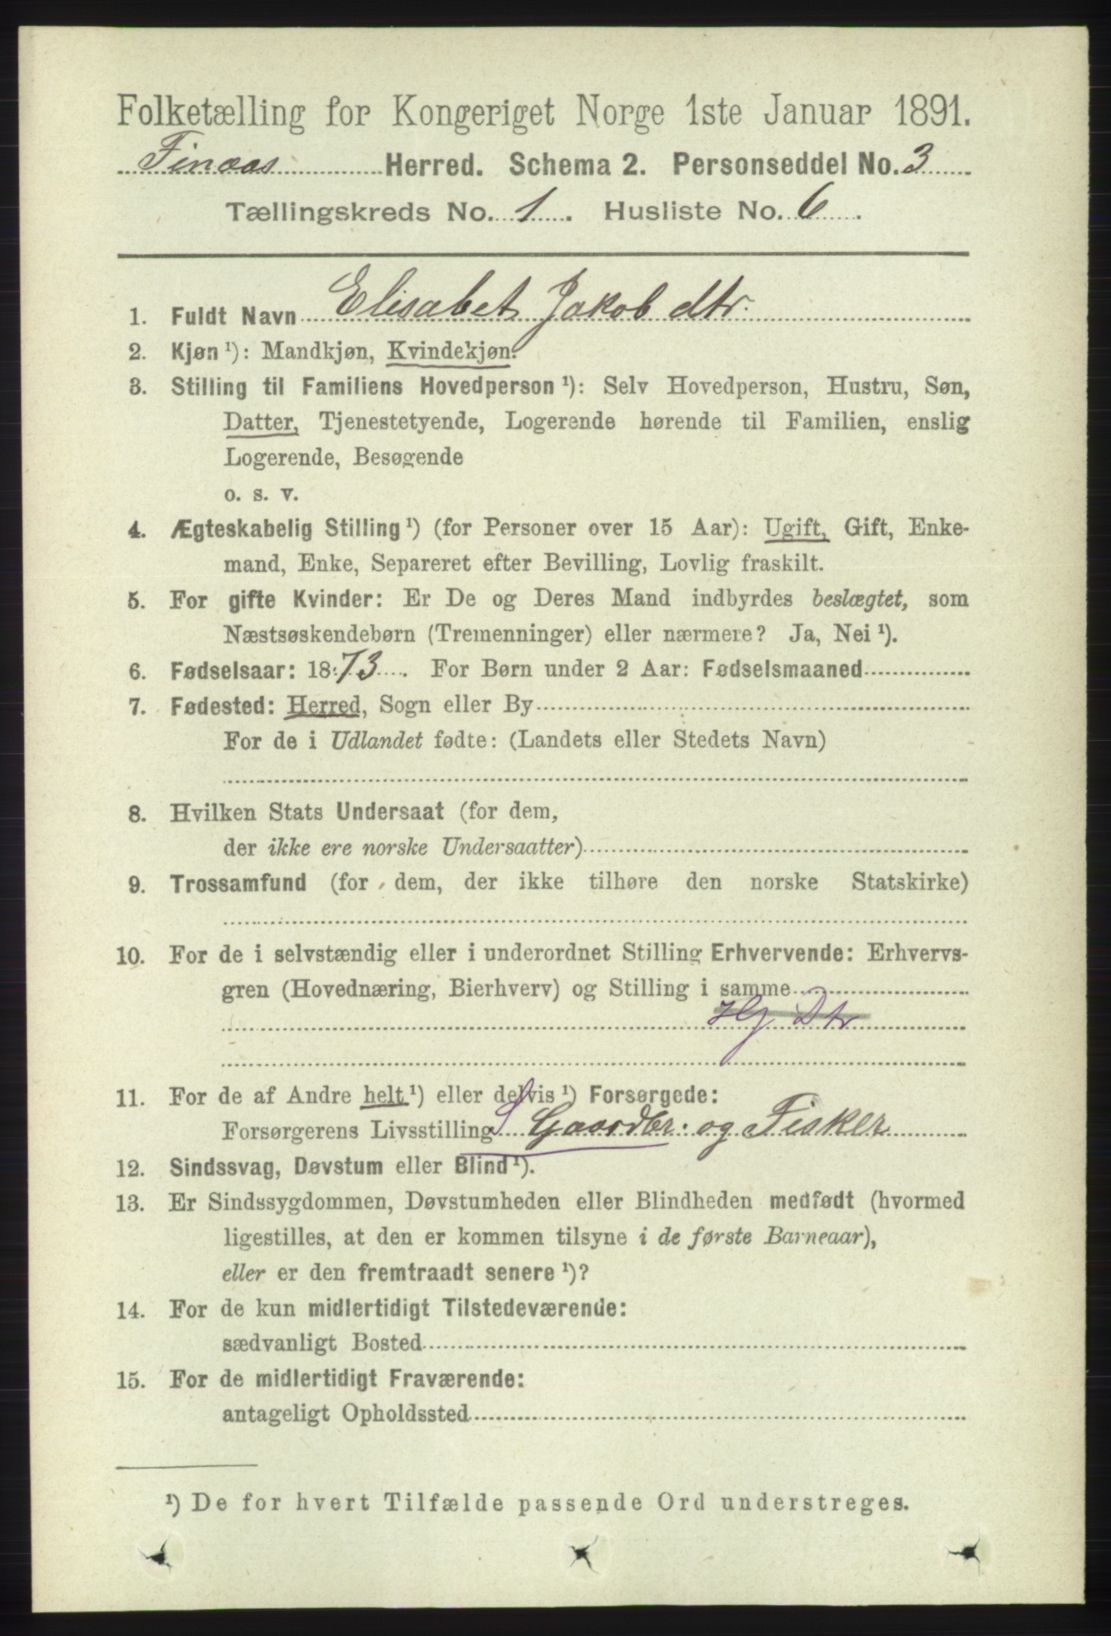 Folketælling for Kongeriget Norge 1ste Januar 1891.
Finaas Herred. Schema 2. Personseddel No. 3
Tællingskreds No. 1. Husliste No. 6.
1. Fuldt Navn Elisabet Jakobdtr.
2. Kjøn ¹): Mandkjøn, Kvindekjøn.
3. Stilling til Familiens Hovedperson ¹): Selv Hovedperson, Hustru, Søn,
Datter, Tjenestetyende, Logerende hørende til Familien, enslig
Logerende, Besøgende
o. s. v.
4. Ægteskabelig Stilling ¹) (for Personer over 15 Aar): Ugift, Gift, Enke-
mand, Enke, Separeret efter Bevilling, Lovlig fraskilt.
5. For gifte Kvinder: Er De og Deres Mand indbyrdes beslægtet, som
Næstsøskendebørn (Tremenninger) eller nærmere? Ja, Nei ¹).
6. Fødselsaar: 1873. For Børn under 2 Aar: Fødselsmaaned
7. Fødested: Herred, Sogn eller By
For de i Udlandet fødte: (Landets eller Stedets Navn)
8. Hvilken Stats Undersaat (for dem,
der ikke ere norske Undersaatter)
9. Trossamfund (for dem, der ikke tilhøre den norske Statskirke)
10. For de i selvstændig eller i underordnet Stilling Erhvervende: Erhvervs-
gren (Hovednæring, Bierhverv) og Stilling i samme
Hg Dtr
11. For de af Andre helt ¹) eller delvis ¹) Forsørgede:
Forsørgerens Livsstilling S Gaardbr. og Fisker
12. Sindssvag, Døvstum eller Blind ¹).
13. Er Sindssygdommen, Døvstumheden eller Blindheden medfødt (hvormed
ligestilles, at den er kommen tilsyne i de første Barneaar),
eller er den fremtraadt senere ¹)?
14. For de kun midlertidigt Tilstedeværende:
sædvanligt Bosted
15. For de midlertidigt Fraværende:
antageligt Opholdssted
¹) De for hvert Tilfælde passende Ord understreges.